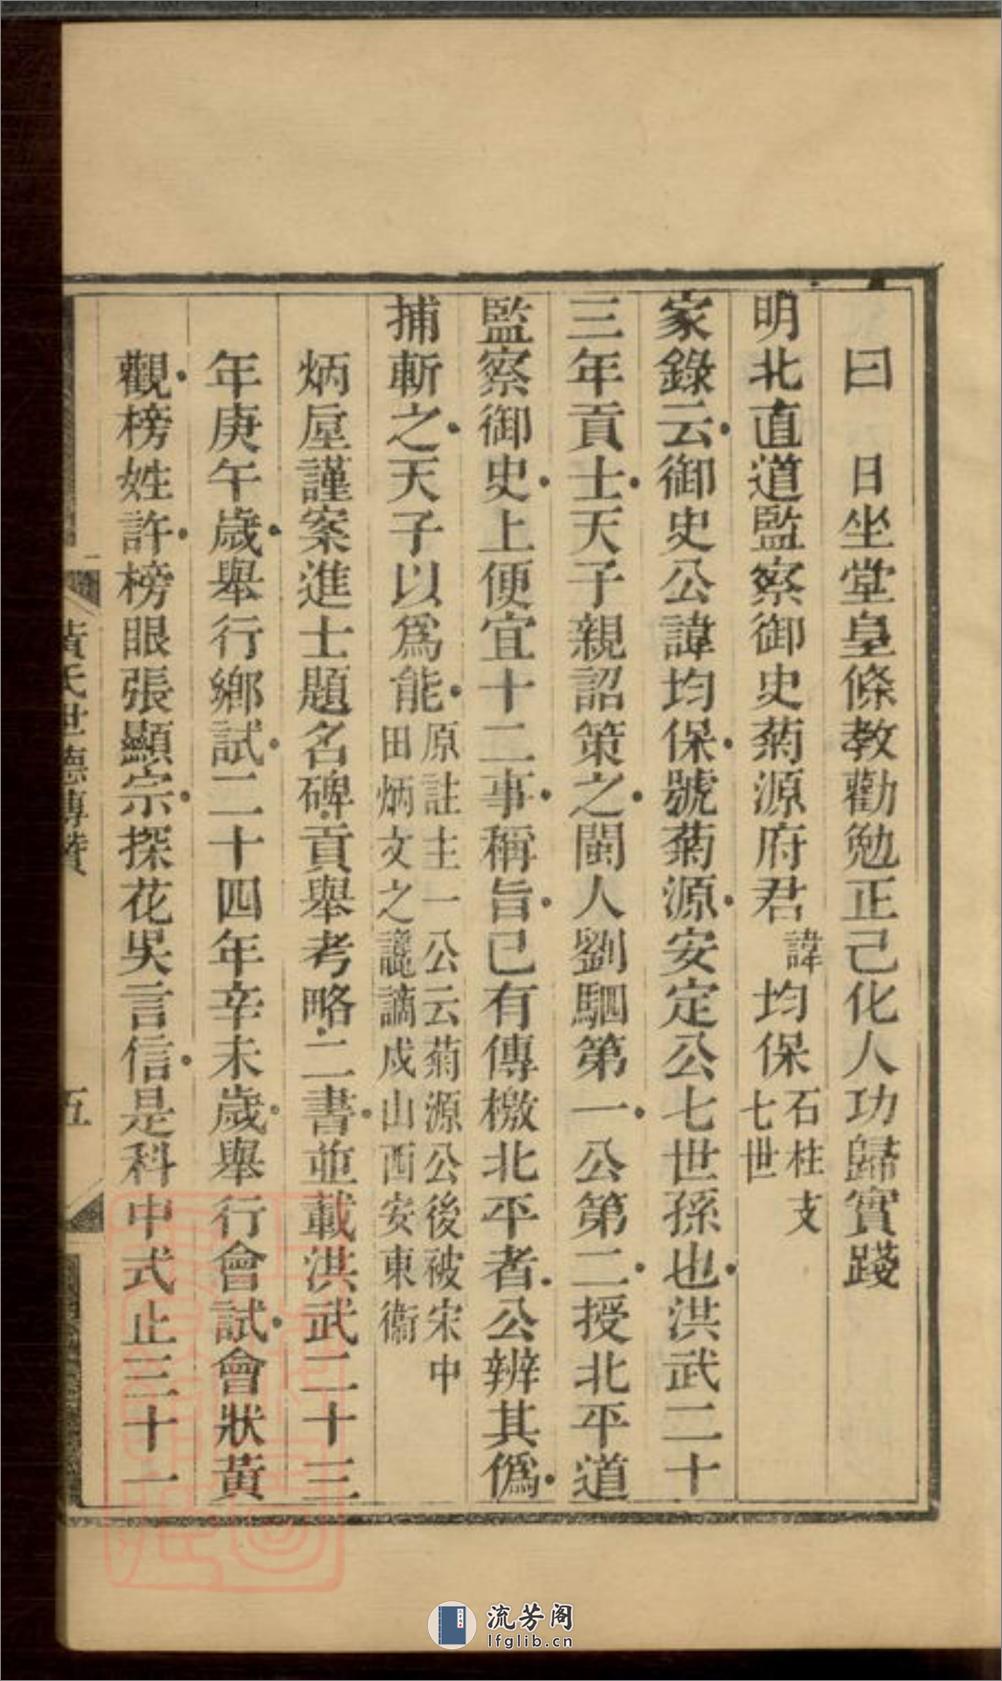 曰　日坐堂皇條教勸勉正己化人功歸實踐
明北直道監察御史菊源府君諱均保石柱支七世
家錄云御史公諱均保號菊源安定公七世孫也洪武二十
三年貢士天子親詔策之閩人劉駟第一公第二授北平道
監察御史上便宜十二事稱旨已有傳檄北平者公辨其僞
捕斬之天子以爲能原註主一公云菊源公後被宋中田炳文之讒謫戍山西安東衞
炳垕謹案進士題名碑貢舉考略二書並載洪武二十三
年庚午歲舉行鄉試二十四年辛未歲舉行會試會狀黃
觀榜姓許榜眼張顯宗探花吳言信是科中式止三十一
黃氏世德傳贊
五
流芳阁
lfglib.cn